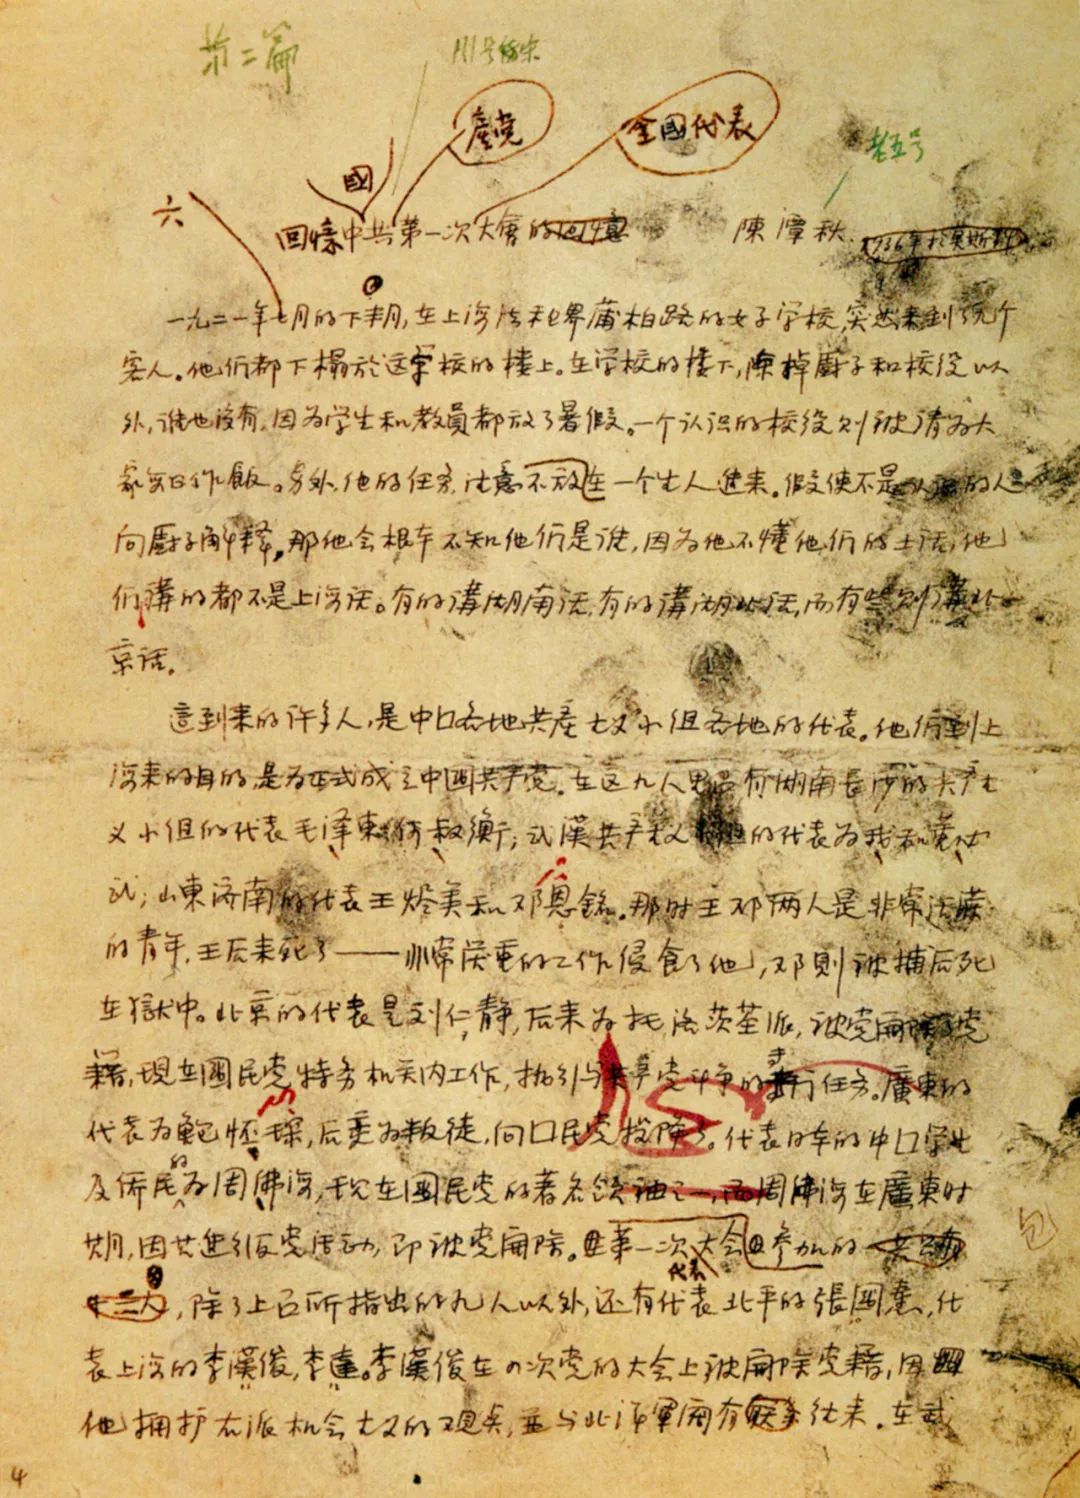 第二篇
产党
全國代表
國
老五号
六
回憶中共第一次大會的回憶 陳潭秋 1936年於莫斯科
一九二一年七月的下半月，在上海法租界蒲柏路的女子学校，突然来到了九个
客人。他们都下榻於这学校的楼上。在学校的楼下，除掉厨子和校役以
外，谁也没有，因为学生和教员都放了暑假。一个认识的校役则被请为大
家每日作飯。另外，他的任务，注意不放生一个生人进来。假使不是认识的人
向厨子解释，那他会根本不知他们是谁，因为他不懂他们的土话，他
们講的都不是上海话。有的講湖南话，有的講湖北话，而有些则講北
京话。
這到来的许多人，是中囗各地共産主义小组各地的代表。他们到上
海来的目的，是为正式成立中國共产党。在这九人里 有湖南長沙的共产主
义小组的代表毛泽東和何叔衡；武漢共产主义 的代表为我和董必
武；山東济南的代表王烬美和邓恩銘。那时王邓两人是非常活
的青年，王后来死了——非常 重的工作侵食了他，邓则被捕后死
在獄中。北京的代表是刘仁静，后来为托洛茨基派，被党開除了党
籍，现在國民党特务机关内工作，执行与共产党斗争的 任务。廣東的
代表为鲍怀琛，后来为叛徒，向囗民党投降了。代表日本的中囗学生
及侨民的为周佛海，现在國民党的著名领袖之一，而周佛海在廣東时
期，因其進行反党活动，即被党開除。 第一次大会代表 参加的 共三
十三人，除了上已所指出的九人以外，还有代表北平的張國燾，代
表上海的李漢俊，李達。李漢俊在 次党的大会上被開除党籍，因
他拥护右派机会主义的观点，並与北洋軍閥有 往来。在武
包
4